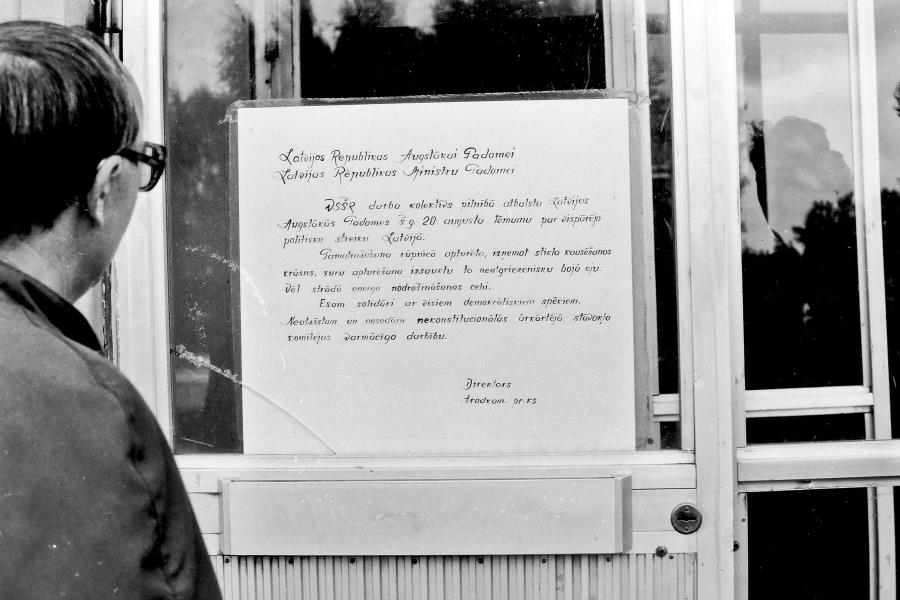 Latvijas Republikas Augstākai Padomei
Latvijas Republikas Ministru Padomei
DSŠR darba kolektīvs pilnībā atbalsta Latvijas
Augstākās Padomes š.g. 20. augusta lēmumu par vispārējo
politisko streiku Latvijā.
Pamatražošana rūpnīcā apturēta, izņemot stikla kausēšanas
krāsns, kuru apturēšana izsauktu to neatgriezenisku bojā eju.
Vēl strādā energo nodrošināšanas cehi.
Esam solidāri ar visiem demokrātiskiem spēkiem.
Neatzīstam un nosodām nekonstitucionālās ārkārtējā stāvokļa
komitejas varmācīgo darbību.
Direktors
Arodkom. pr-ks